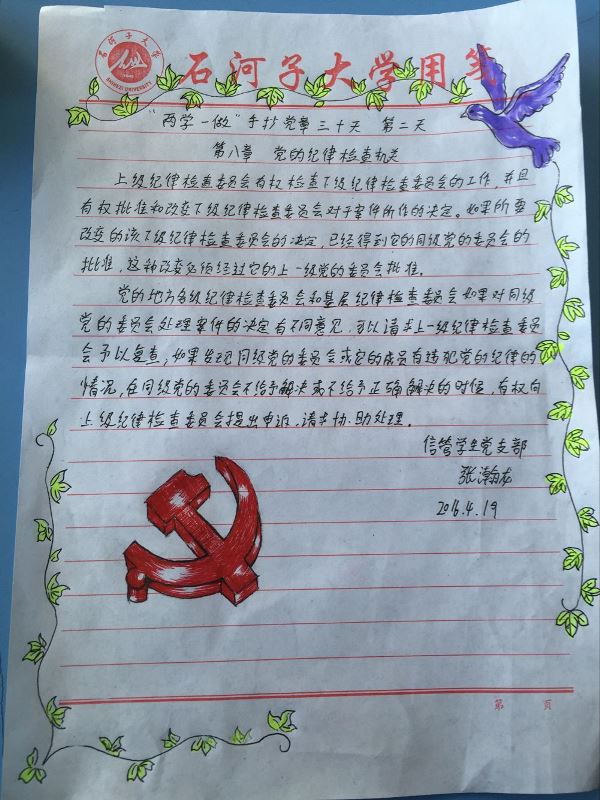 石河子大学
SHIHEZI UNIVERSITY
石河子大学用笺
"两学一做"手抄党章三十天 第二天
第八章 党的纪律检查机关
上级纪律检查委员会有权检查下级纪律检查委员会的工作,并且
有权批准和改变下级纪律检查委员会对于案件所作的决定。如果所要
改变的该下级纪律检查委员会的决定,已经得到它的同级党的委员会的
批准,这种改变必须经过它的上一级党的委员会批准。
党的地方各级纪律检查委员会和基层纪律检查委员会如果对同级
党的委员会处理案件的决定有不同意见,可以请求上一级纪律检查委员
会予以复查,如果发现同级党的委员会或它的成员有违犯党的纪律的
情况,在同级党的委员会不给予解决或不给予正确解决的时候,有权向
上级纪律检查委员会提出申诉,请求协助处理。
信管学生党支部
张瀚龙
2016.4.19
第 页